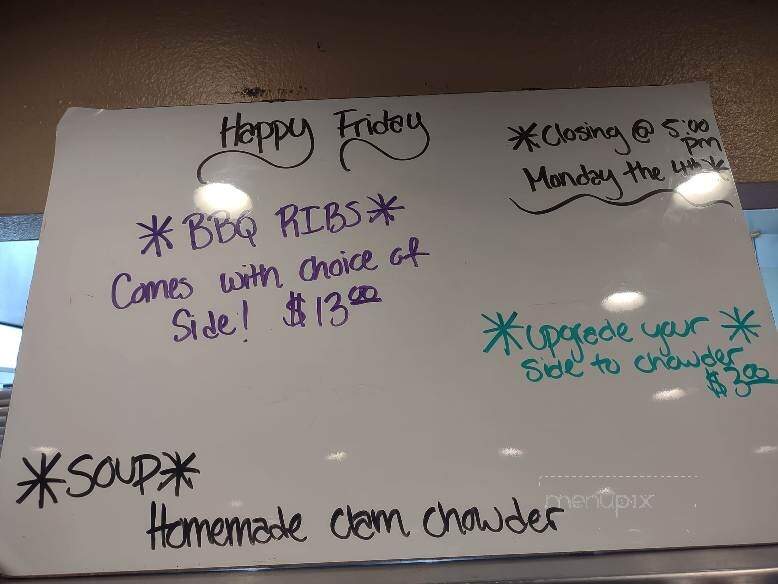 Happy Friday
*Closing @ 5:00 pm
Monday the 4th*
*BBQ RIBS*
Comes with choice of
Side! $13.00
*upgrade your*
Side to chowder
$3.00
*SOUP*
Homemade clam chowder
menupix